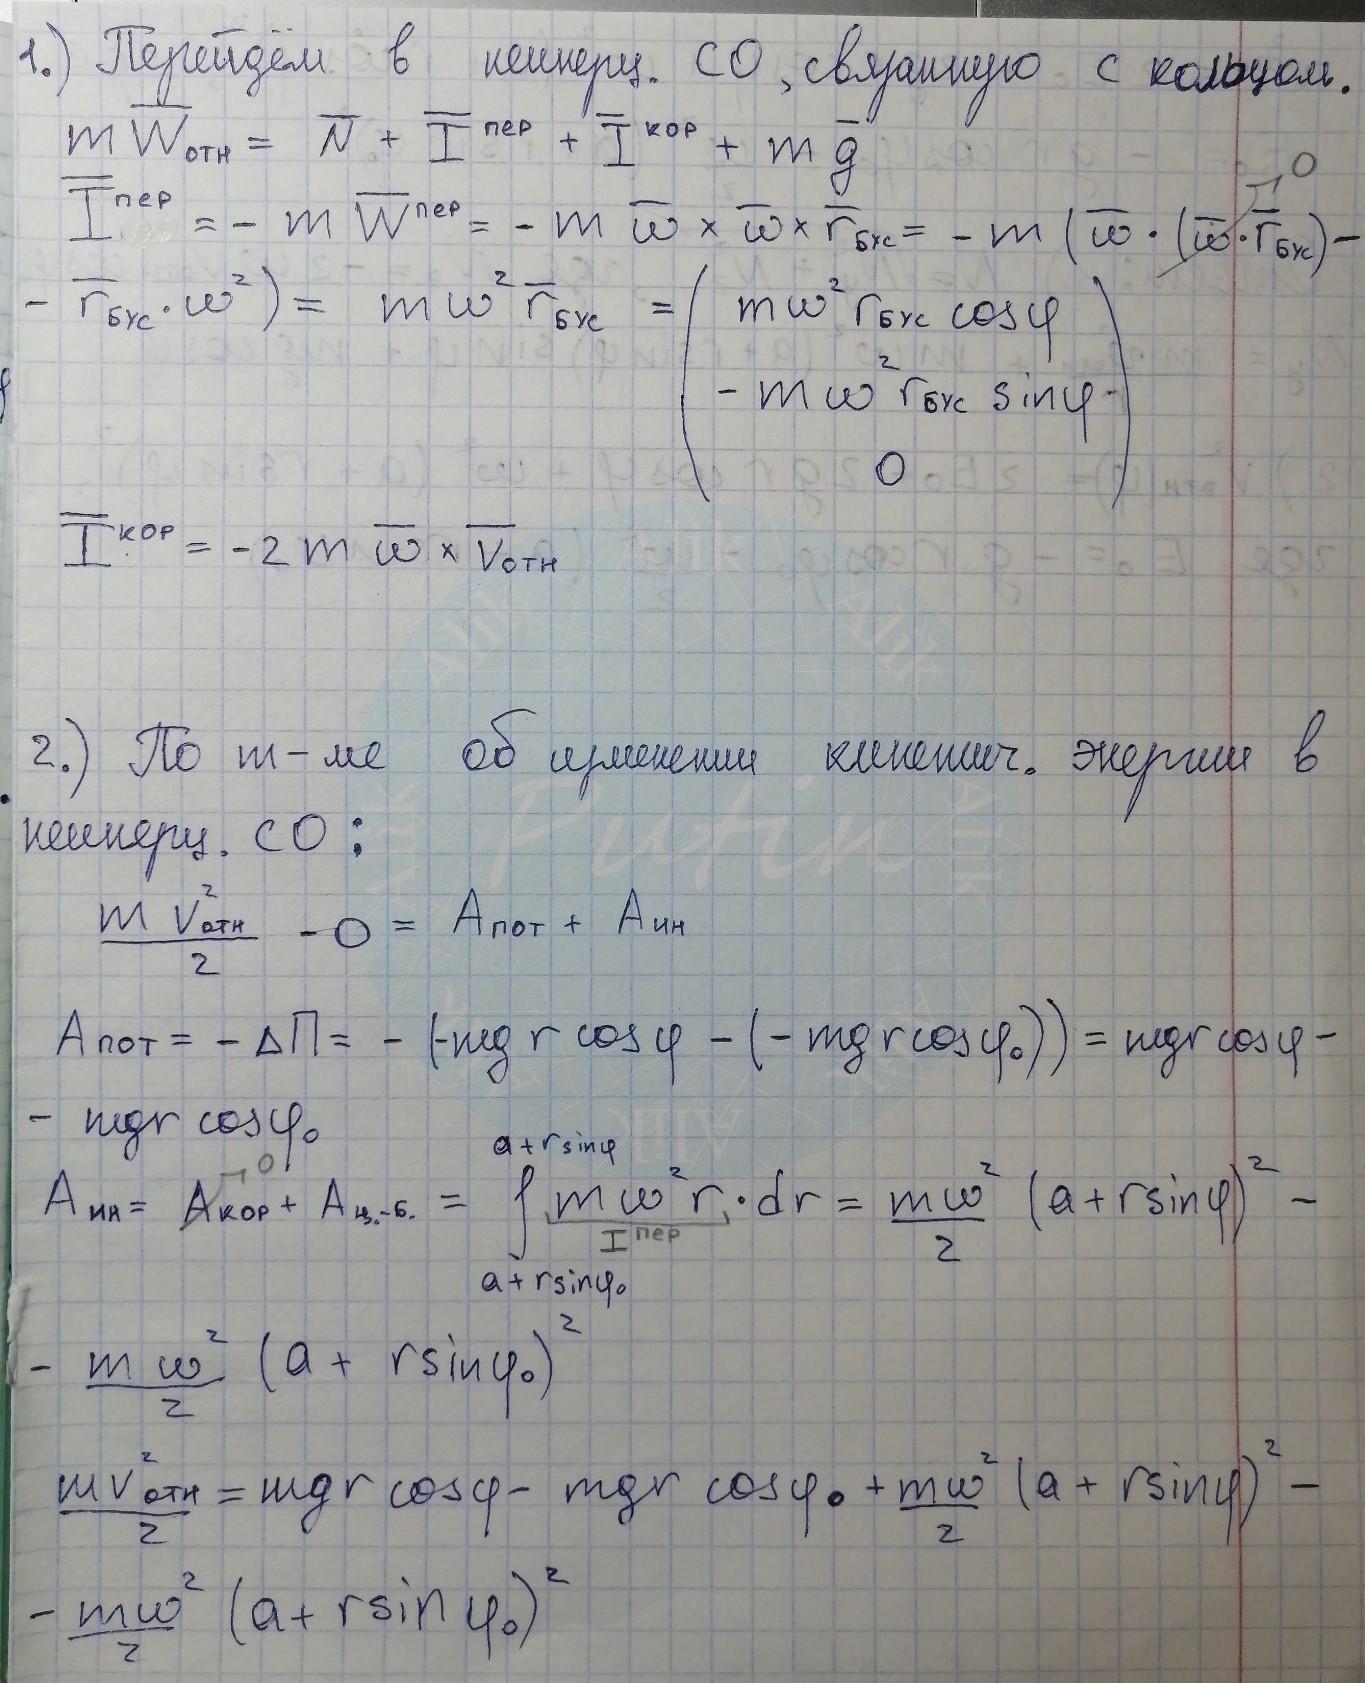 1.) Перейдём в неинерц. СО, связанную с кольцом.
m W̅отн = N̅ + I̅ᵖᵉʳ + I̅ᵏᵒᵖ + m g̅
I̅ᵖᵉʳ = - m W̅ᵖᵉʳ = - m ω̅ × ω̅ × r̅бус = - m (ω̅ · (ω̅ · r̅бус) - → 0
- r̅бус · ω²) = mω² r̅бус = ( mω² rбус cosφ
- mω² rбус sinφ
0 )
I̅ᵏᵒᵖ = -2m ω̅ × V̅отн
2.) По т-ме об изменении кинетич. энергии в
неинерц. СО:
m v²отн / 2 - 0 = Aпот + Aин
Aпот = - ΔП = - (-mgr cosφ - (-mgr cosφ₀)) = mgr cosφ -
- mgr cosφ₀
Aин = Aкор → 0 + Aц.-б. = ∫ (a+r sinφ₀ ; a+r sinφ) mω²r · dr = mω²/2 (a + r sinφ)² -
Iᵖᵉʳ
- mω²/2 (a + r sinφ₀)²
mv²отн / 2 = mgr cosφ - mgr cosφ₀ + mω²/2 (a + r sinφ)² -
- mω²/2 (a + r sinφ₀)²
Putin
Alik
Alik
Alik
Alik
Alik